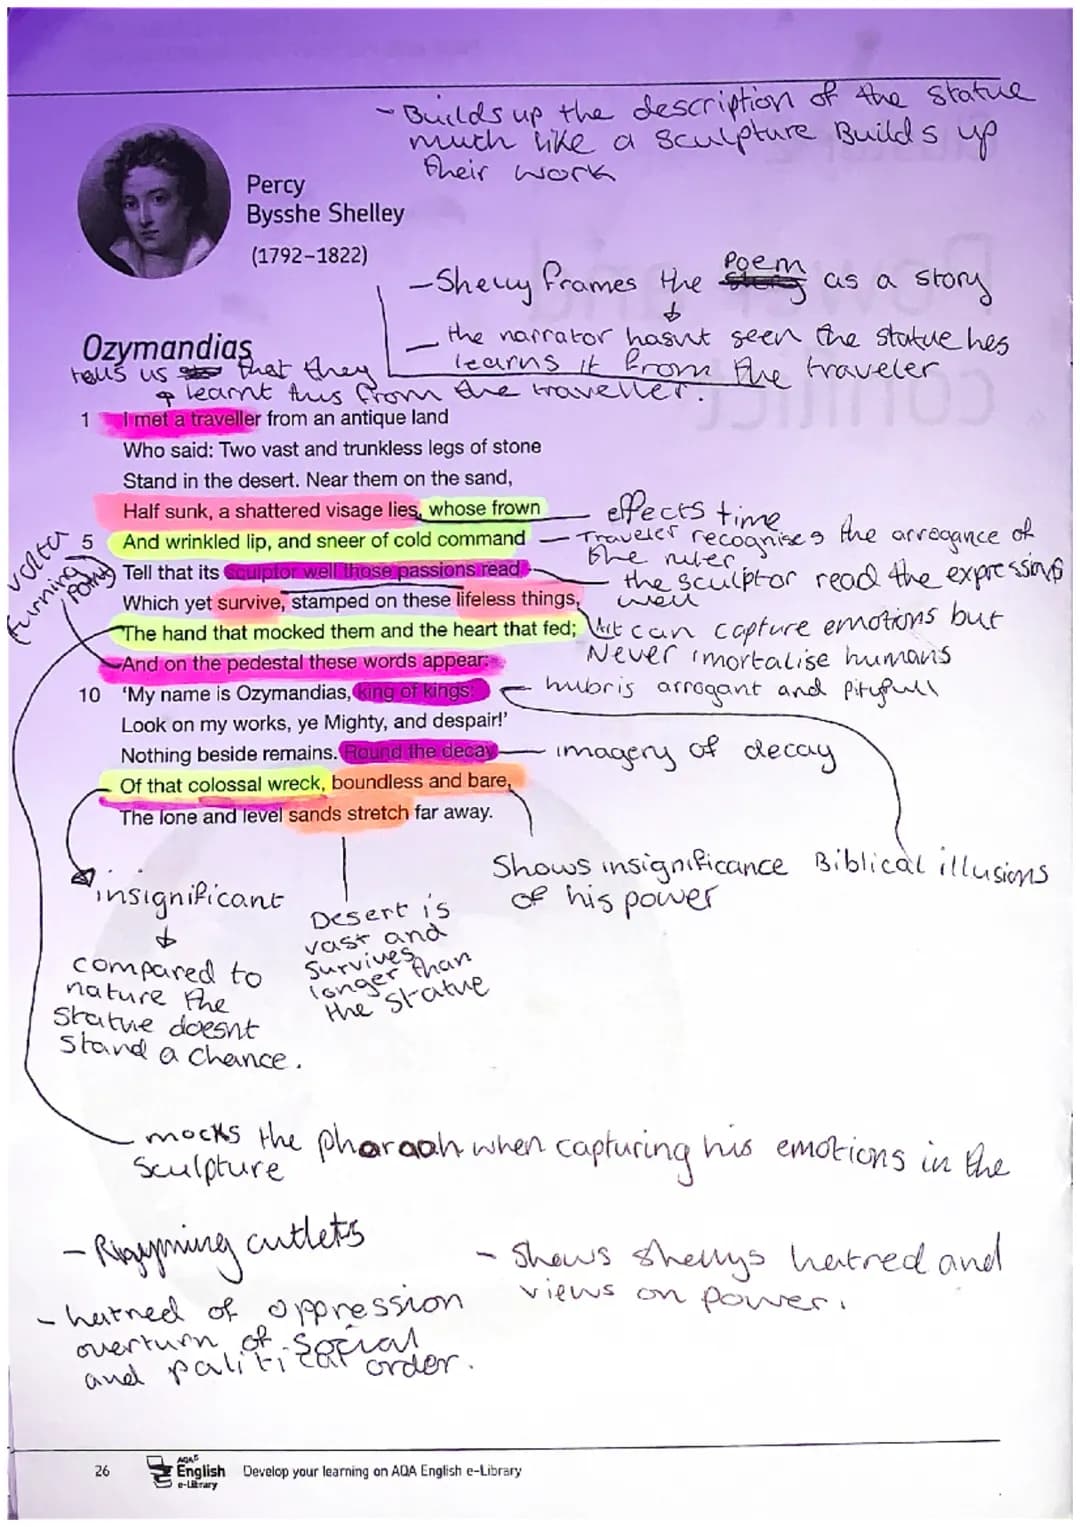 - Builds up the description of the statue
much like a sculpture Builds up
their work
Percy
Bysshe Shelley
(1792–1822)
- Shelly frames the Poem as a story
the narrator hasnt seen the statue hes
learns it from the traveler
Ozymandias
tells us that they
learnt this from the traveller.
1 I met a traveller from an antique land
Who said: Two vast and trunkless legs of stone
Stand in the desert. Near them on the sand,
Half sunk, a shattered visage lies, whose frown
effects time
5 And wrinkled lip, and sneer of cold command
Traveler recognises the arrogance of
the ruler
volta
turning point
Tell that its sculptor well those passions read
the sculptor read the expressions
well
Which yet survive, stamped on these lifeless things,
The hand that mocked them and the heart that fed;
Art can capture emotions but
Never imortalise humans
And on the pedestal these words appear:
10 'My name is Ozymandias, king of kings:
hubris arrogant and pityfull
Look on my works, ye Mighty, and despair!'
Nothing beside remains. Round the decay
imagery of decay
Of that colossal wreck, boundless and bare,
The lone and level sands stretch far away.
insignificant
compared to
nature the
statue doesnt
stand a chance.
Desert is
vast and
survives
longer than
the statue
Shows insignificance
of his power
Biblical illusions
mocks the pharaoh when capturing his emotions in the
sculpture
- Rhyming cutlets
- hatred of oppression
overturn of social
and political order.
- Shows shellys hatred and
views on power.
26
AQA
English
e-Library
Develop your learning on AQA English e-Library